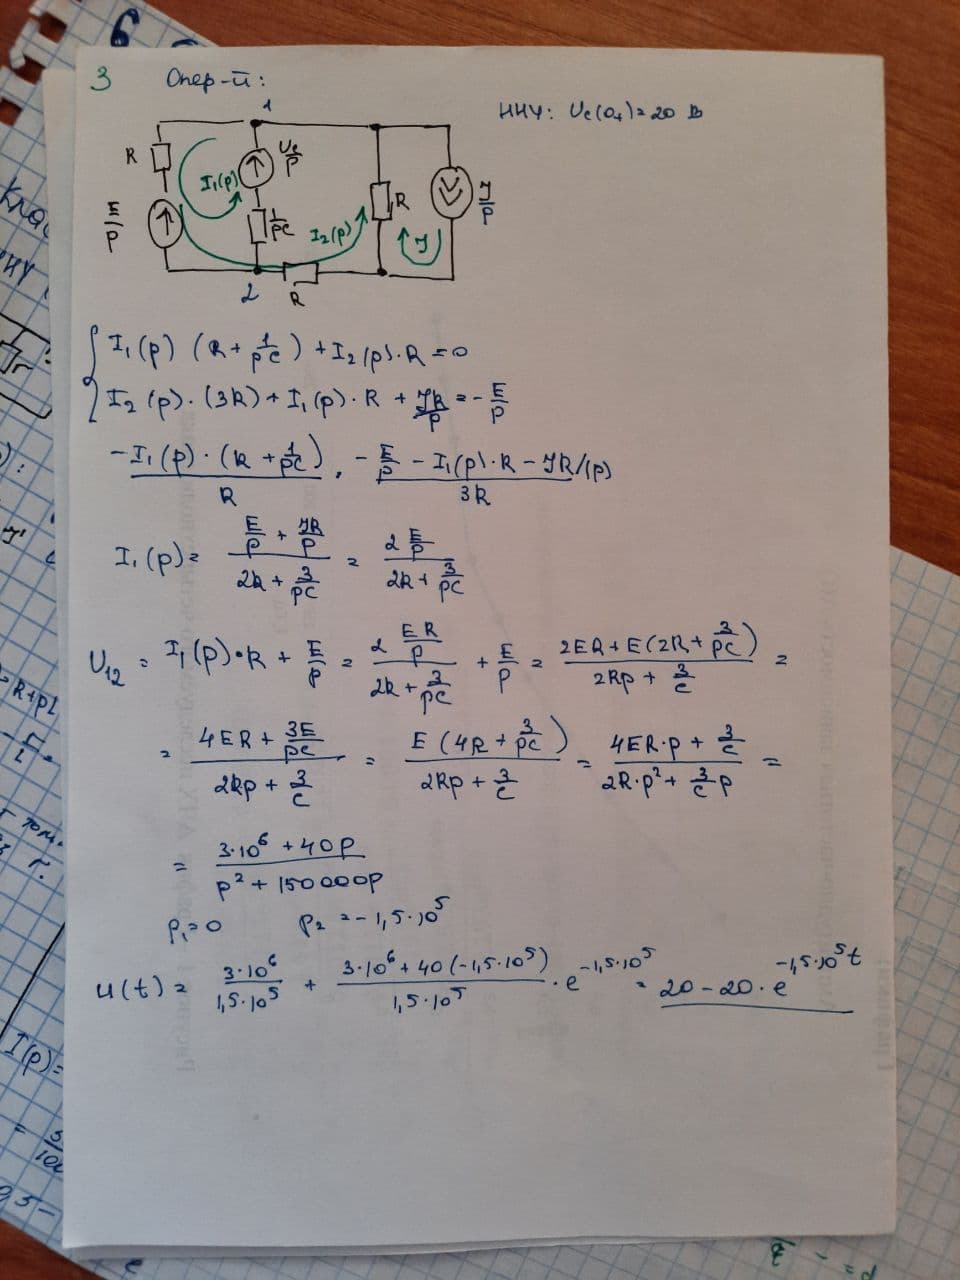 3 Опер-й:
ННУ: Uc(0+) = 20 В
1
R
Uc/p
I₁(p)
E/p
1/pc
I₂(p)
R
J
J/p
2
R
I₁(p) (R + 1/pc) + I₂(p)·R = 0
I₂(p)·(3R) + I₁(p)·R + JR/p = - E/p
-I₁(p)·(R + 1/pc) / R = (- E/p - I₁(p)·R - JR/(p)) / 3R
I₁(p) = (E/p + JR/p) / (2R + 3/pc) = 2 E/p / (2R + 3/pc)
U₁₂ = I₁(p)·R + E/p = 2 ER/p / (2R + 3/pc) + E/p = (2ER + E(2R + 3/pc)) / (2Rp + 3/c) =
= (4ER + 3E/pc) / (2Rp + 3/c) = E(4R + 3/pc) / (2Rp + 3/c) = (4ER·p + 3/c) / (2R·p² + 3/c p) =
= (3·10⁶ + 40p) / (p² + 150000p)
p₁ = 0 p₂ = -1,5·10⁵
u(t) = 3·10⁶ / 1,5·10⁵ + (3·10⁶ + 40(-1,5·10⁵)) / 1,5·10⁵ · e^(-1,5·10⁵) = 20 - 20·e^(-1,5·10⁵t)